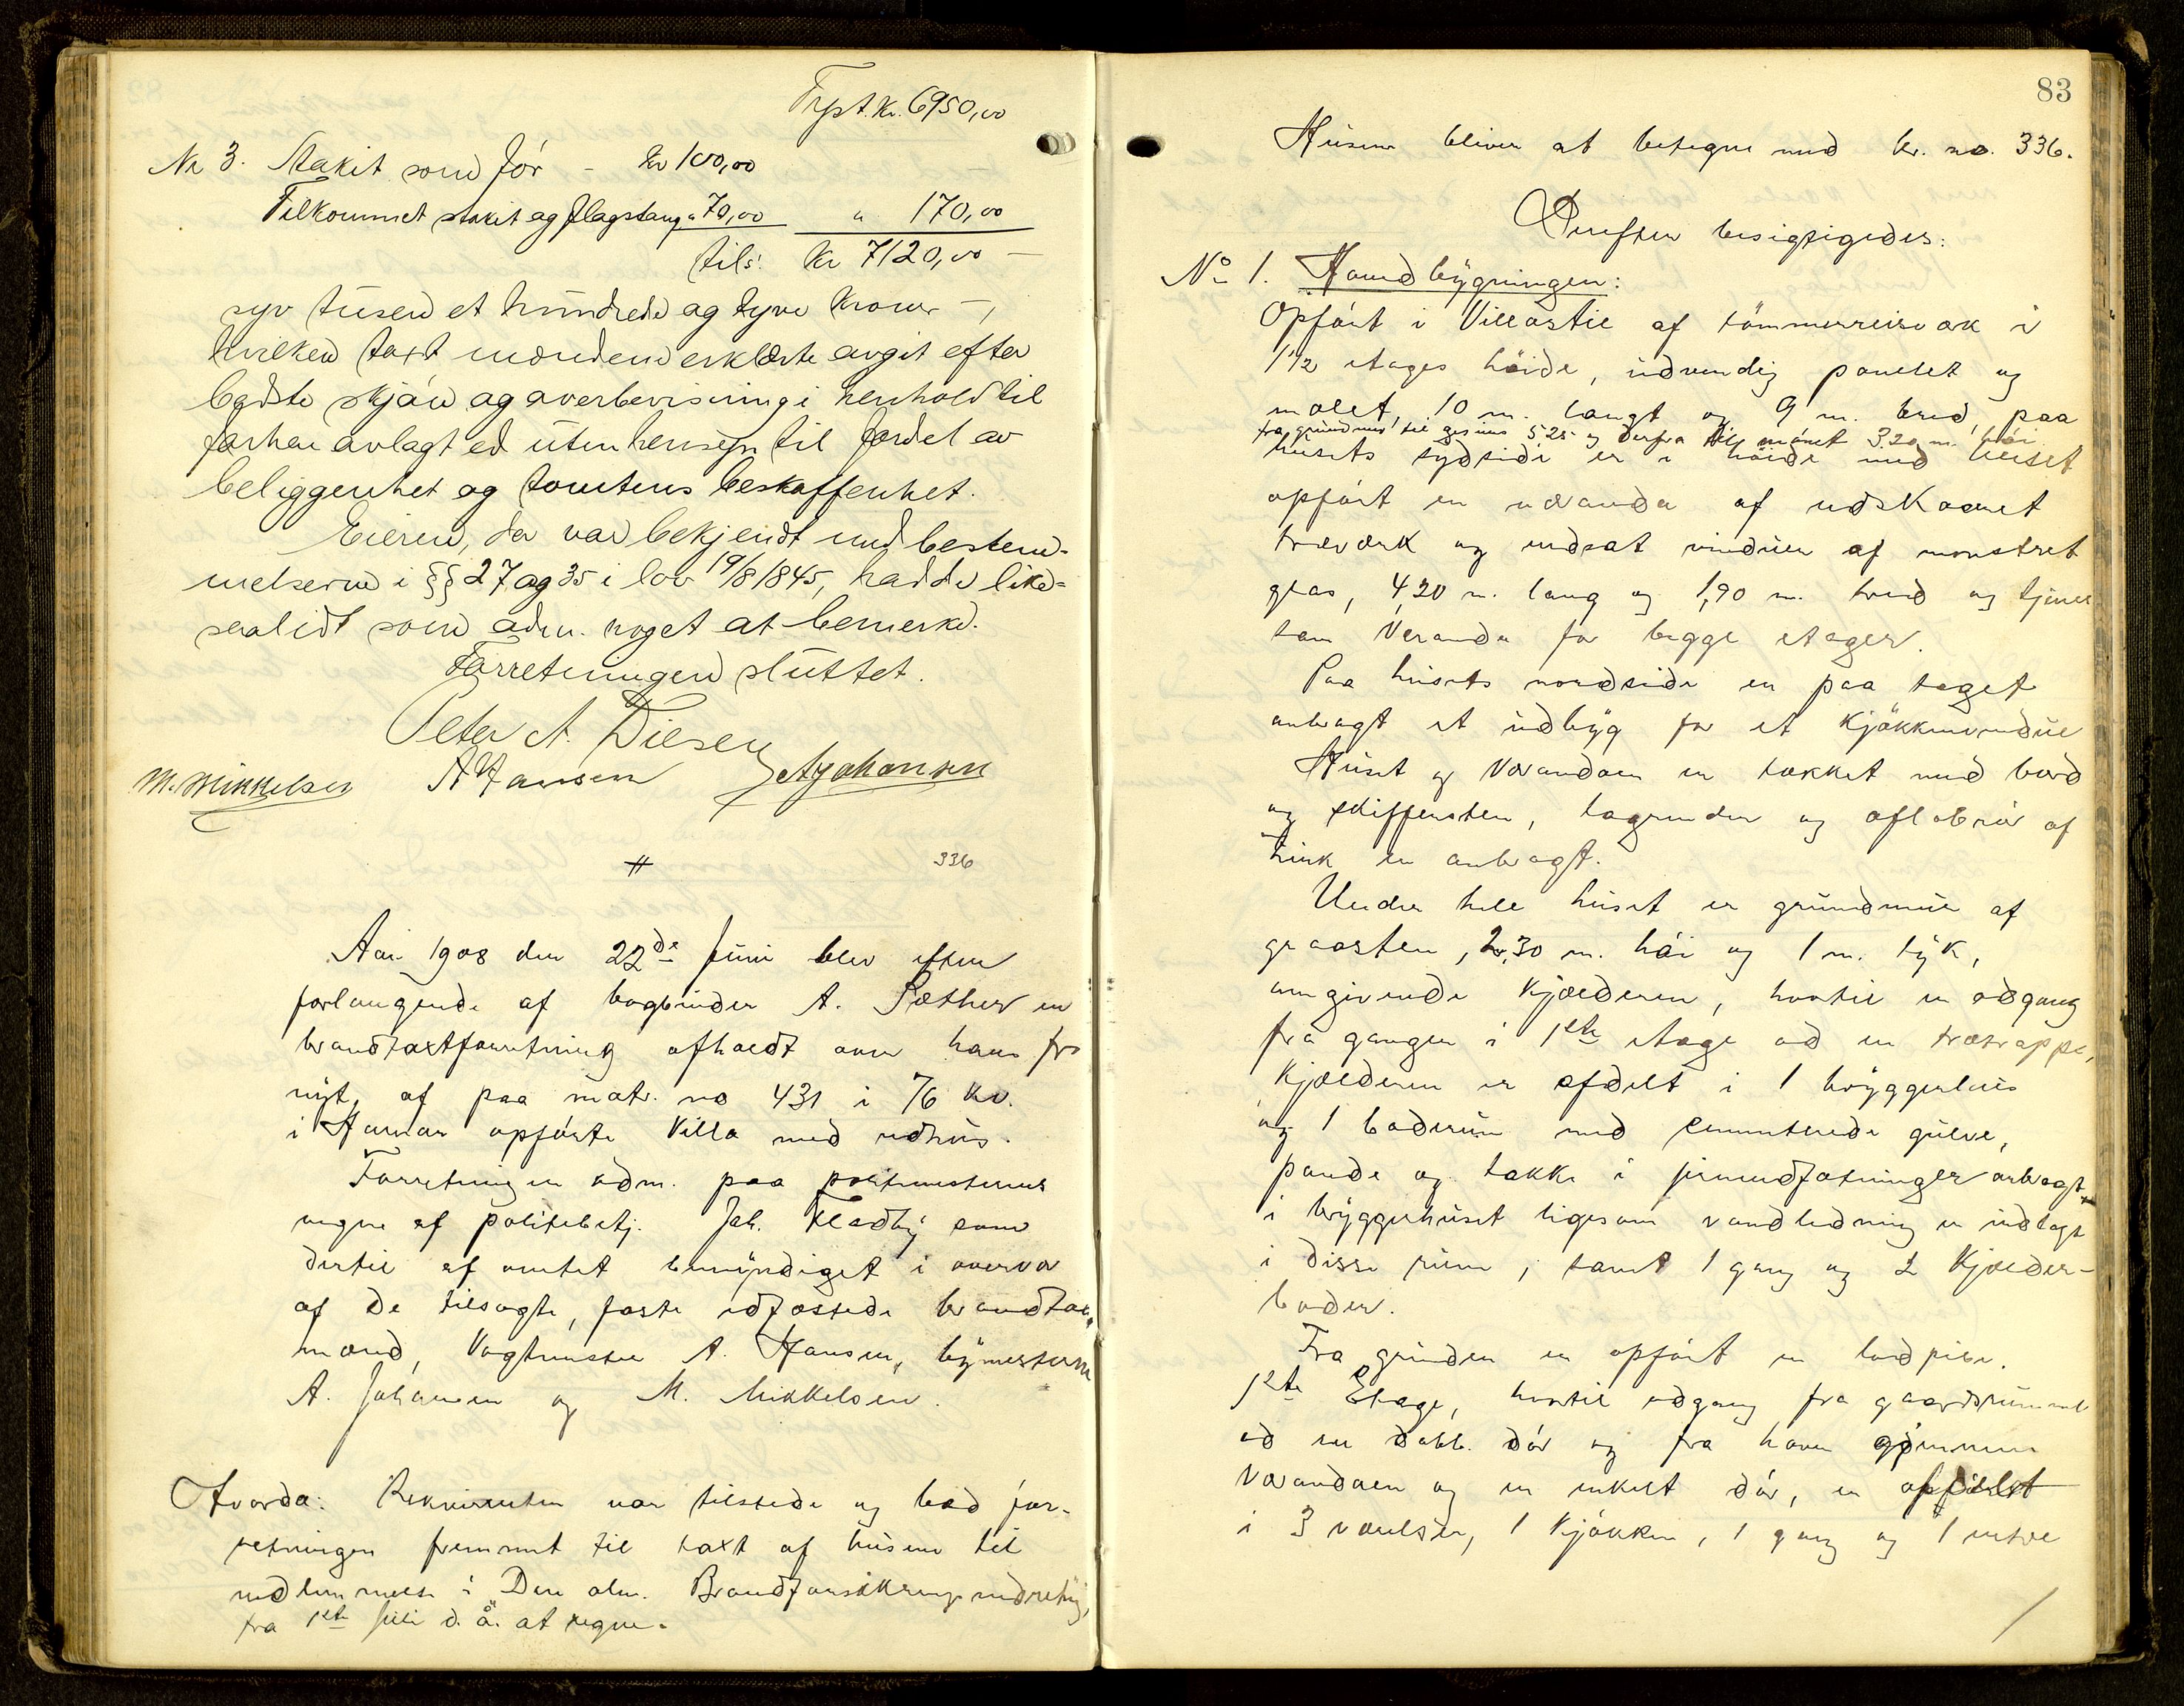 Trpst. Kr. 6950,00
No 3. Stakit som før - kr 100,00
Tilkommet stakit og flagstang " 70,00 " 170,00
tils. kr 7120,00 -
syv tusen et hundrede og tyve kroner -,
hvilken takst mændene erklærte avgit efter
bedste skjøn og overbevisning i henhold til
forhen avlagt ed uten hensyn til fordel av
beliggenhet og tomtens beskaffenhet.
Eieren, der var bekjendt med bestem-
melserne i §§ 27 og 35 i lov 19/8 1845, hadde like-
saalidt som adm. noget at bemerke.
Forretningen sluttet.
Peter A. Diesen
M. Mikkelsen A Hansen A Johansen
#
336
Aar 1908 den 22de Juni blev efter
forlangende af bogbinder A. Sæther en
brandtaxtforretning afholdt over hans fra
nyt af paa matr. no 431 i 76 kv.
i Hamar opførte Villa med udhus.
Forretningen adm. paa politimesterens
vegne af politibetj. Joh. Fladby som
dertil af amtet bemyndiget i overvær
af de tilsagte, faste edfæstede brandtax-
mænd, Vagtmester A. Hansen, bymesterne
A. Johansen og M. Mikkelsen.
Hvorda: Rekvirenten var tilstede og bad for-
retningen fremmet til taxt af husene til
indlemmelse i Den alm. Brandforsikringsindretning,
fra 1ste Juli d. å. at regne.
83
Husene bliver at betegne med br. no. 336.
Derefter besigtigedes:
No 1. Hovedbygningen:
Opført i Villastil af tömmerreisværk i
1 1/2 etages höide, udvendig panelet og
malet, 10 m. langt og 9 m. bred, paa
fra grundmur til gesims 5,25 og derfra til mønet 3,20 m. høi
husets sydside er i höide med huset
opført en veranda af udskaaret
træværk og indsat vinduer af mønstret
glas, 4,20 m. lang og 1,90 m. bred og tjener
som Veranda for begge etager.
Paa husets nordside er paa taget
anbragt et udbyg for et kjøkkenvindue
Huset og Verandaen er tækket med bord
og skiffersten, tagrender og afløbsrør af
zink er anbragt.
Under hele huset er grundmur af
graasten, 2,30 m. høi og 1 m. tyk,
omgivende kjælderen, hvortil er adgang
fra gangen i 1ste etage ad en trætrappe,
Kjælderen er afdelt i 1 bryggerhus
og 1 baderum med cementerede gulve,
pande og takke i jernindfatninger anbragt
i bryggerhuset ligesom vandledning er indlagt
i disse rum, samt 1 gang og 2 kjælder-
boder.
Fra grunden er opført en lodpibe.
1ste Etage, hvortil adgang fra gaardsrummet
ad en dobb. dør og fra haven gjennem
Verandaen og en enkelt dør, er afdelt
i 3 værelser, 1 kjøkken, 1 gang og 1 indre